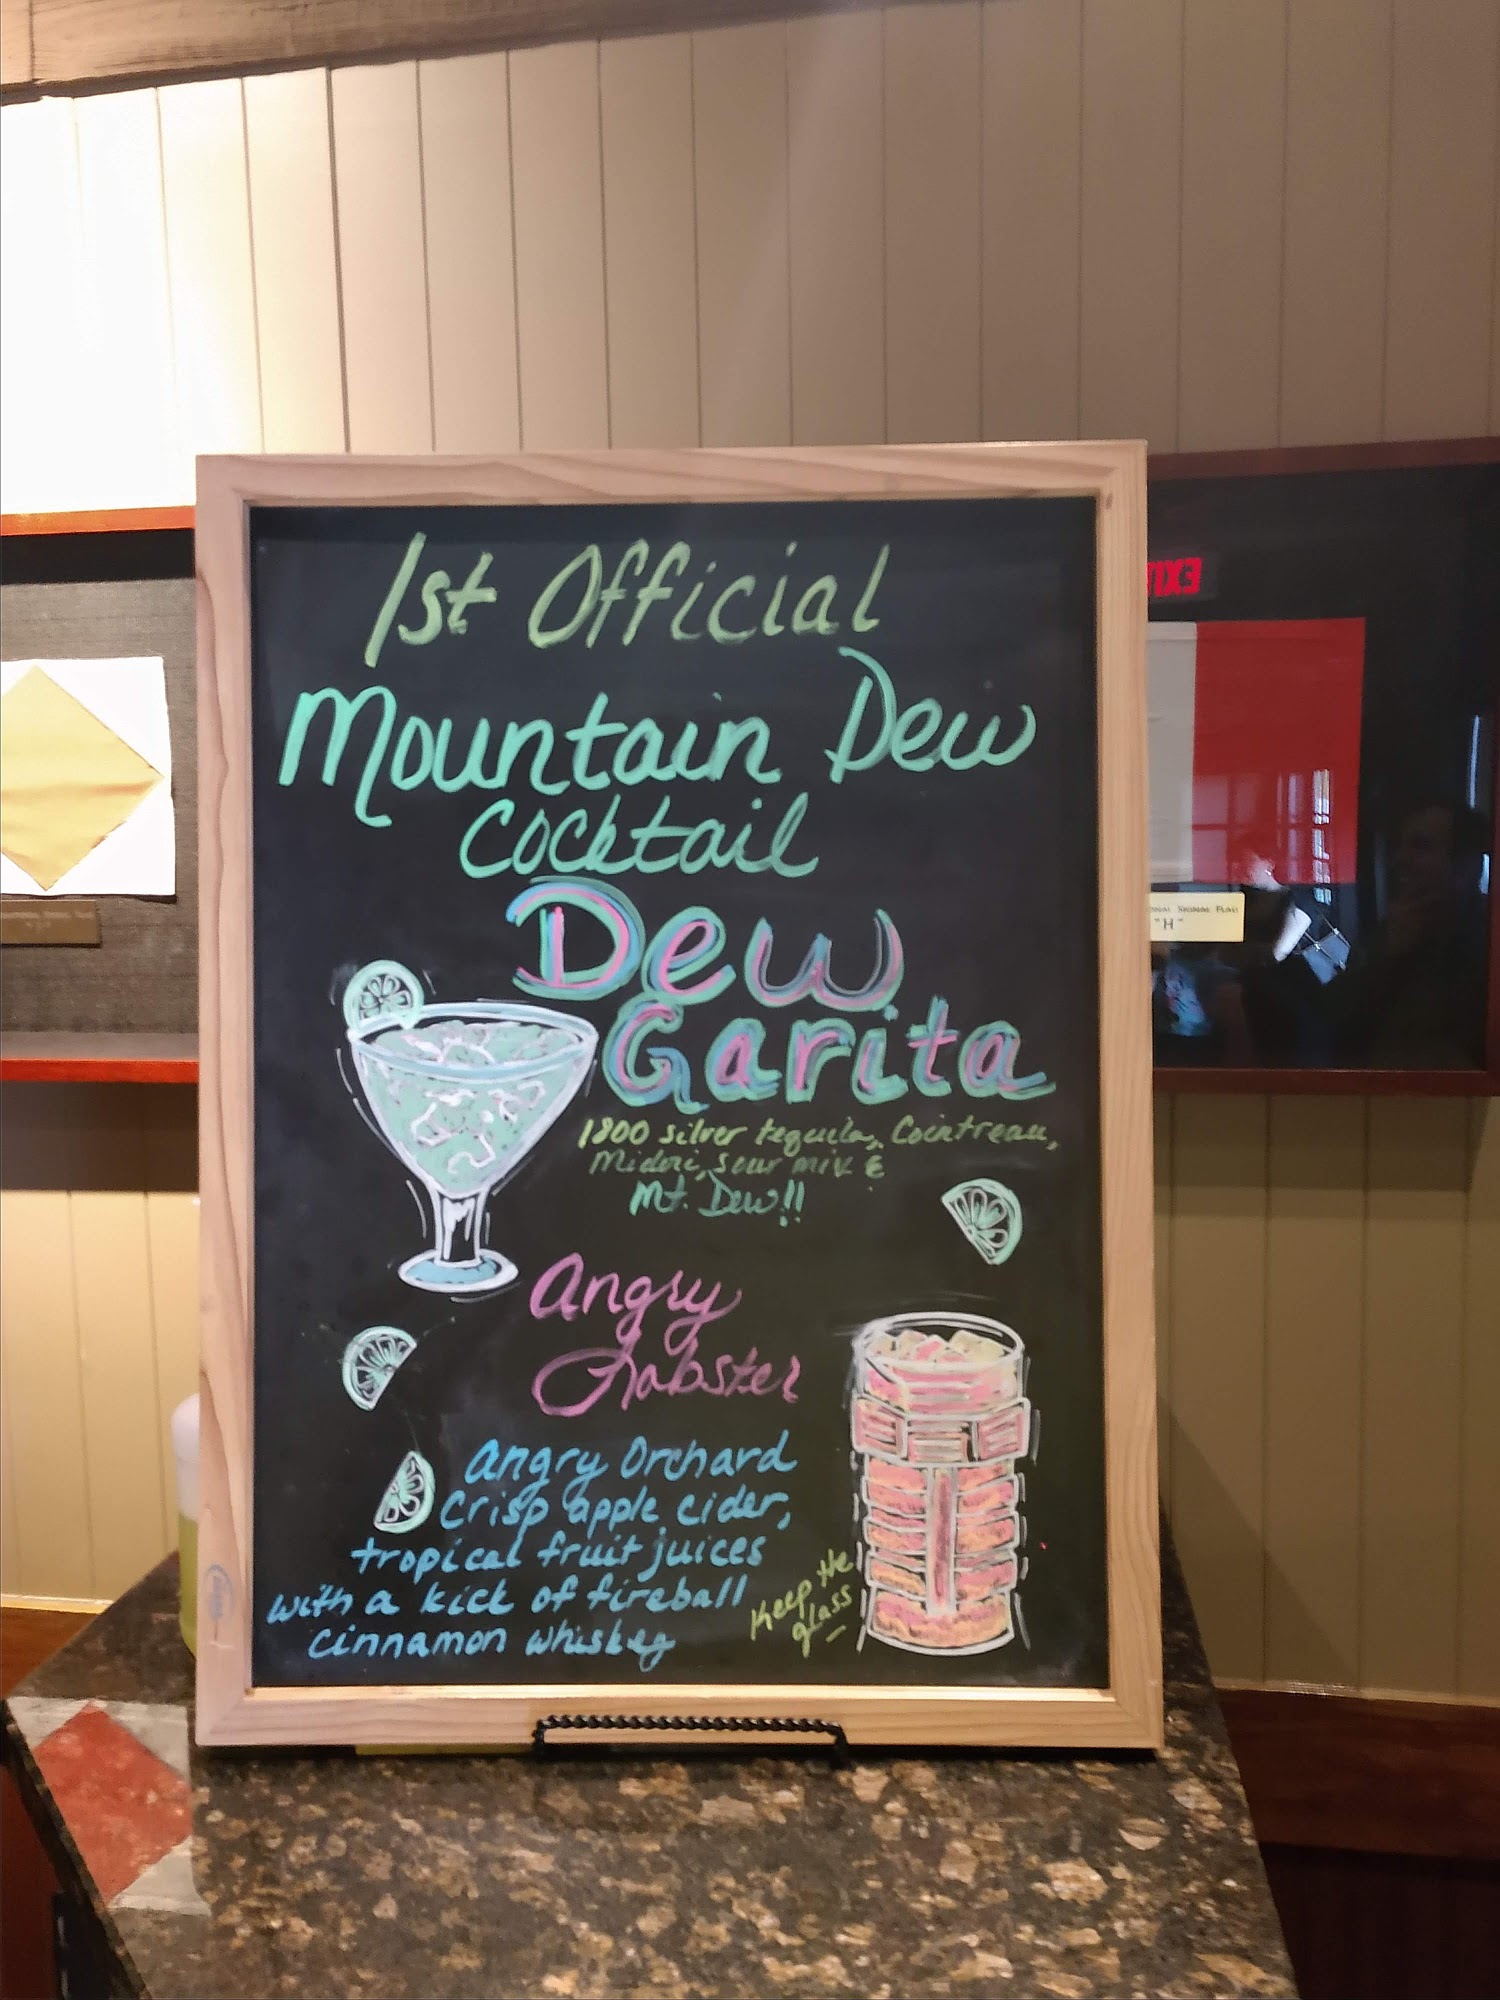 1st Official
Mountain Dew
Cocktail
Dew
Garita
1800 silver tequila, Cointreau,
Midori, sour mix &
Mt. Dew!!
Angry
Lobster
Angry Orchard
Crisp apple cider,
tropical fruit juices
with a kick of fireball
cinnamon whiskey
Keep the
glass
EXIT
SIGNAL FLAG
"H"